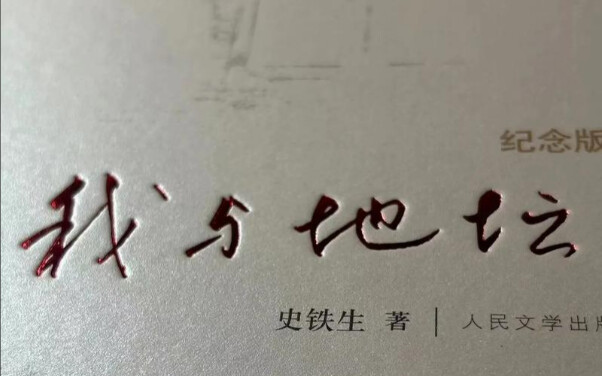 纪念版
我与地坛
史铁生 著 | 人民文学出版